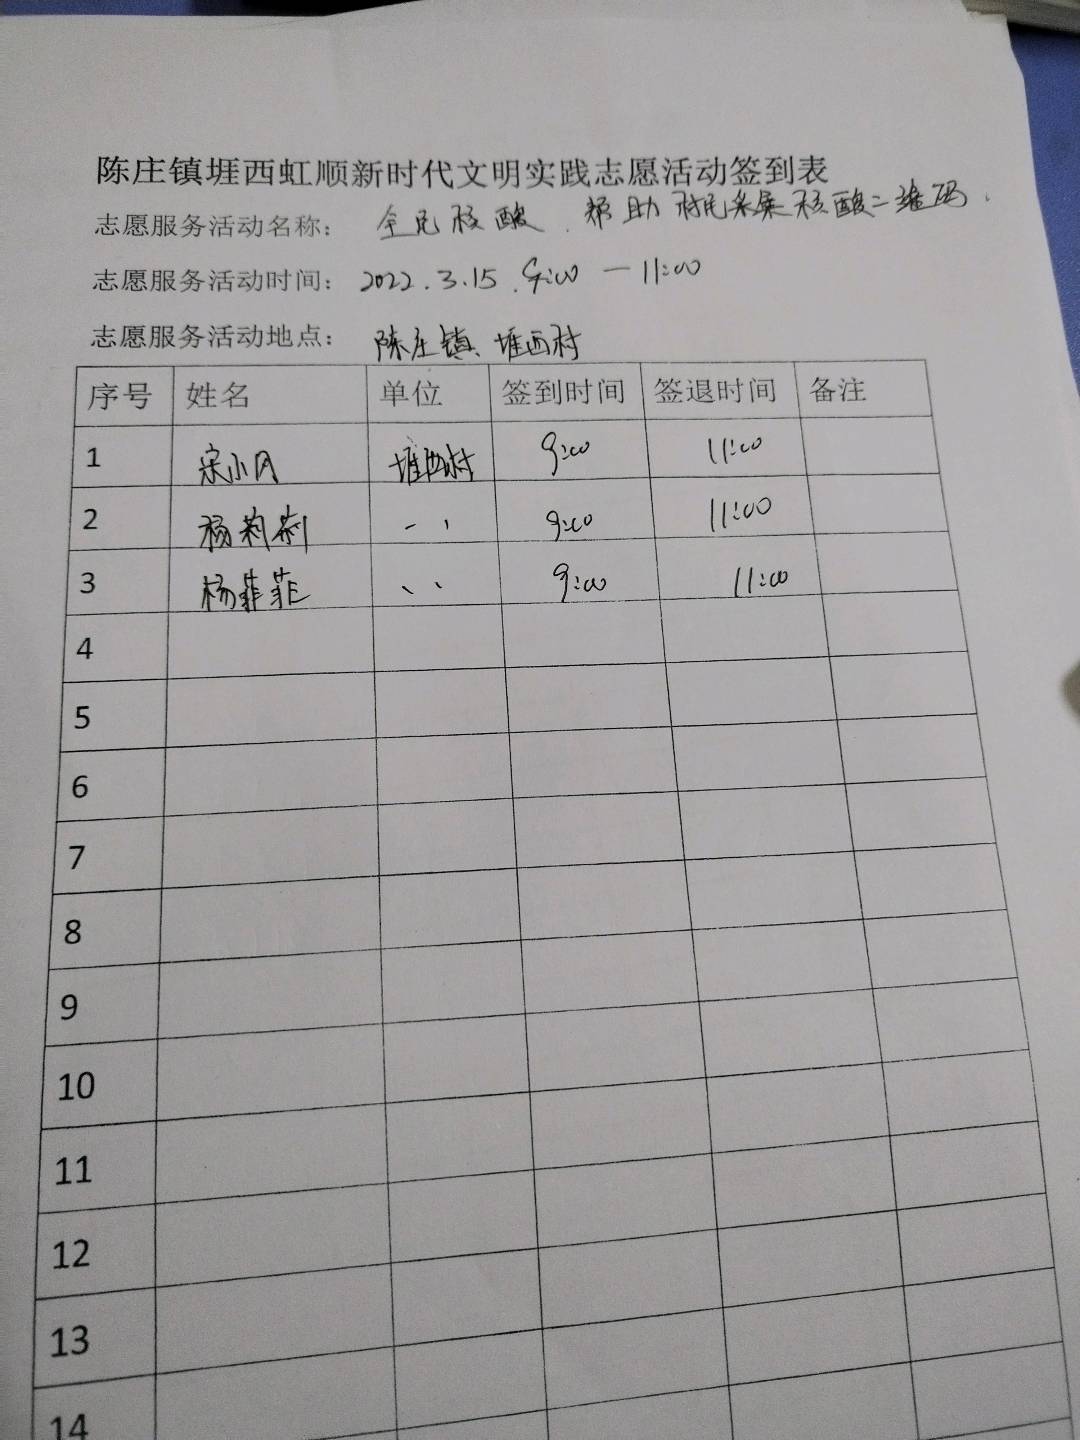 陈庄镇堐西虹顺新时代文明实践志愿活动签到表
志愿服务活动名称： 全民核酸、帮助村民采集核酸二维码.
志愿服务活动时间： 2022.3.15.9:00 — 11:00
志愿服务活动地点： 陈庄镇、堐西村
序号 姓名 单位 签到时间 签退时间 备注
1 宋小 堐西村 9:00 11:00
2 杨莉莉 、、 9:00 11:00
3 杨菲菲 、、 9:00 11:00
4
5
6
7
8
9
10
11
12
13
14